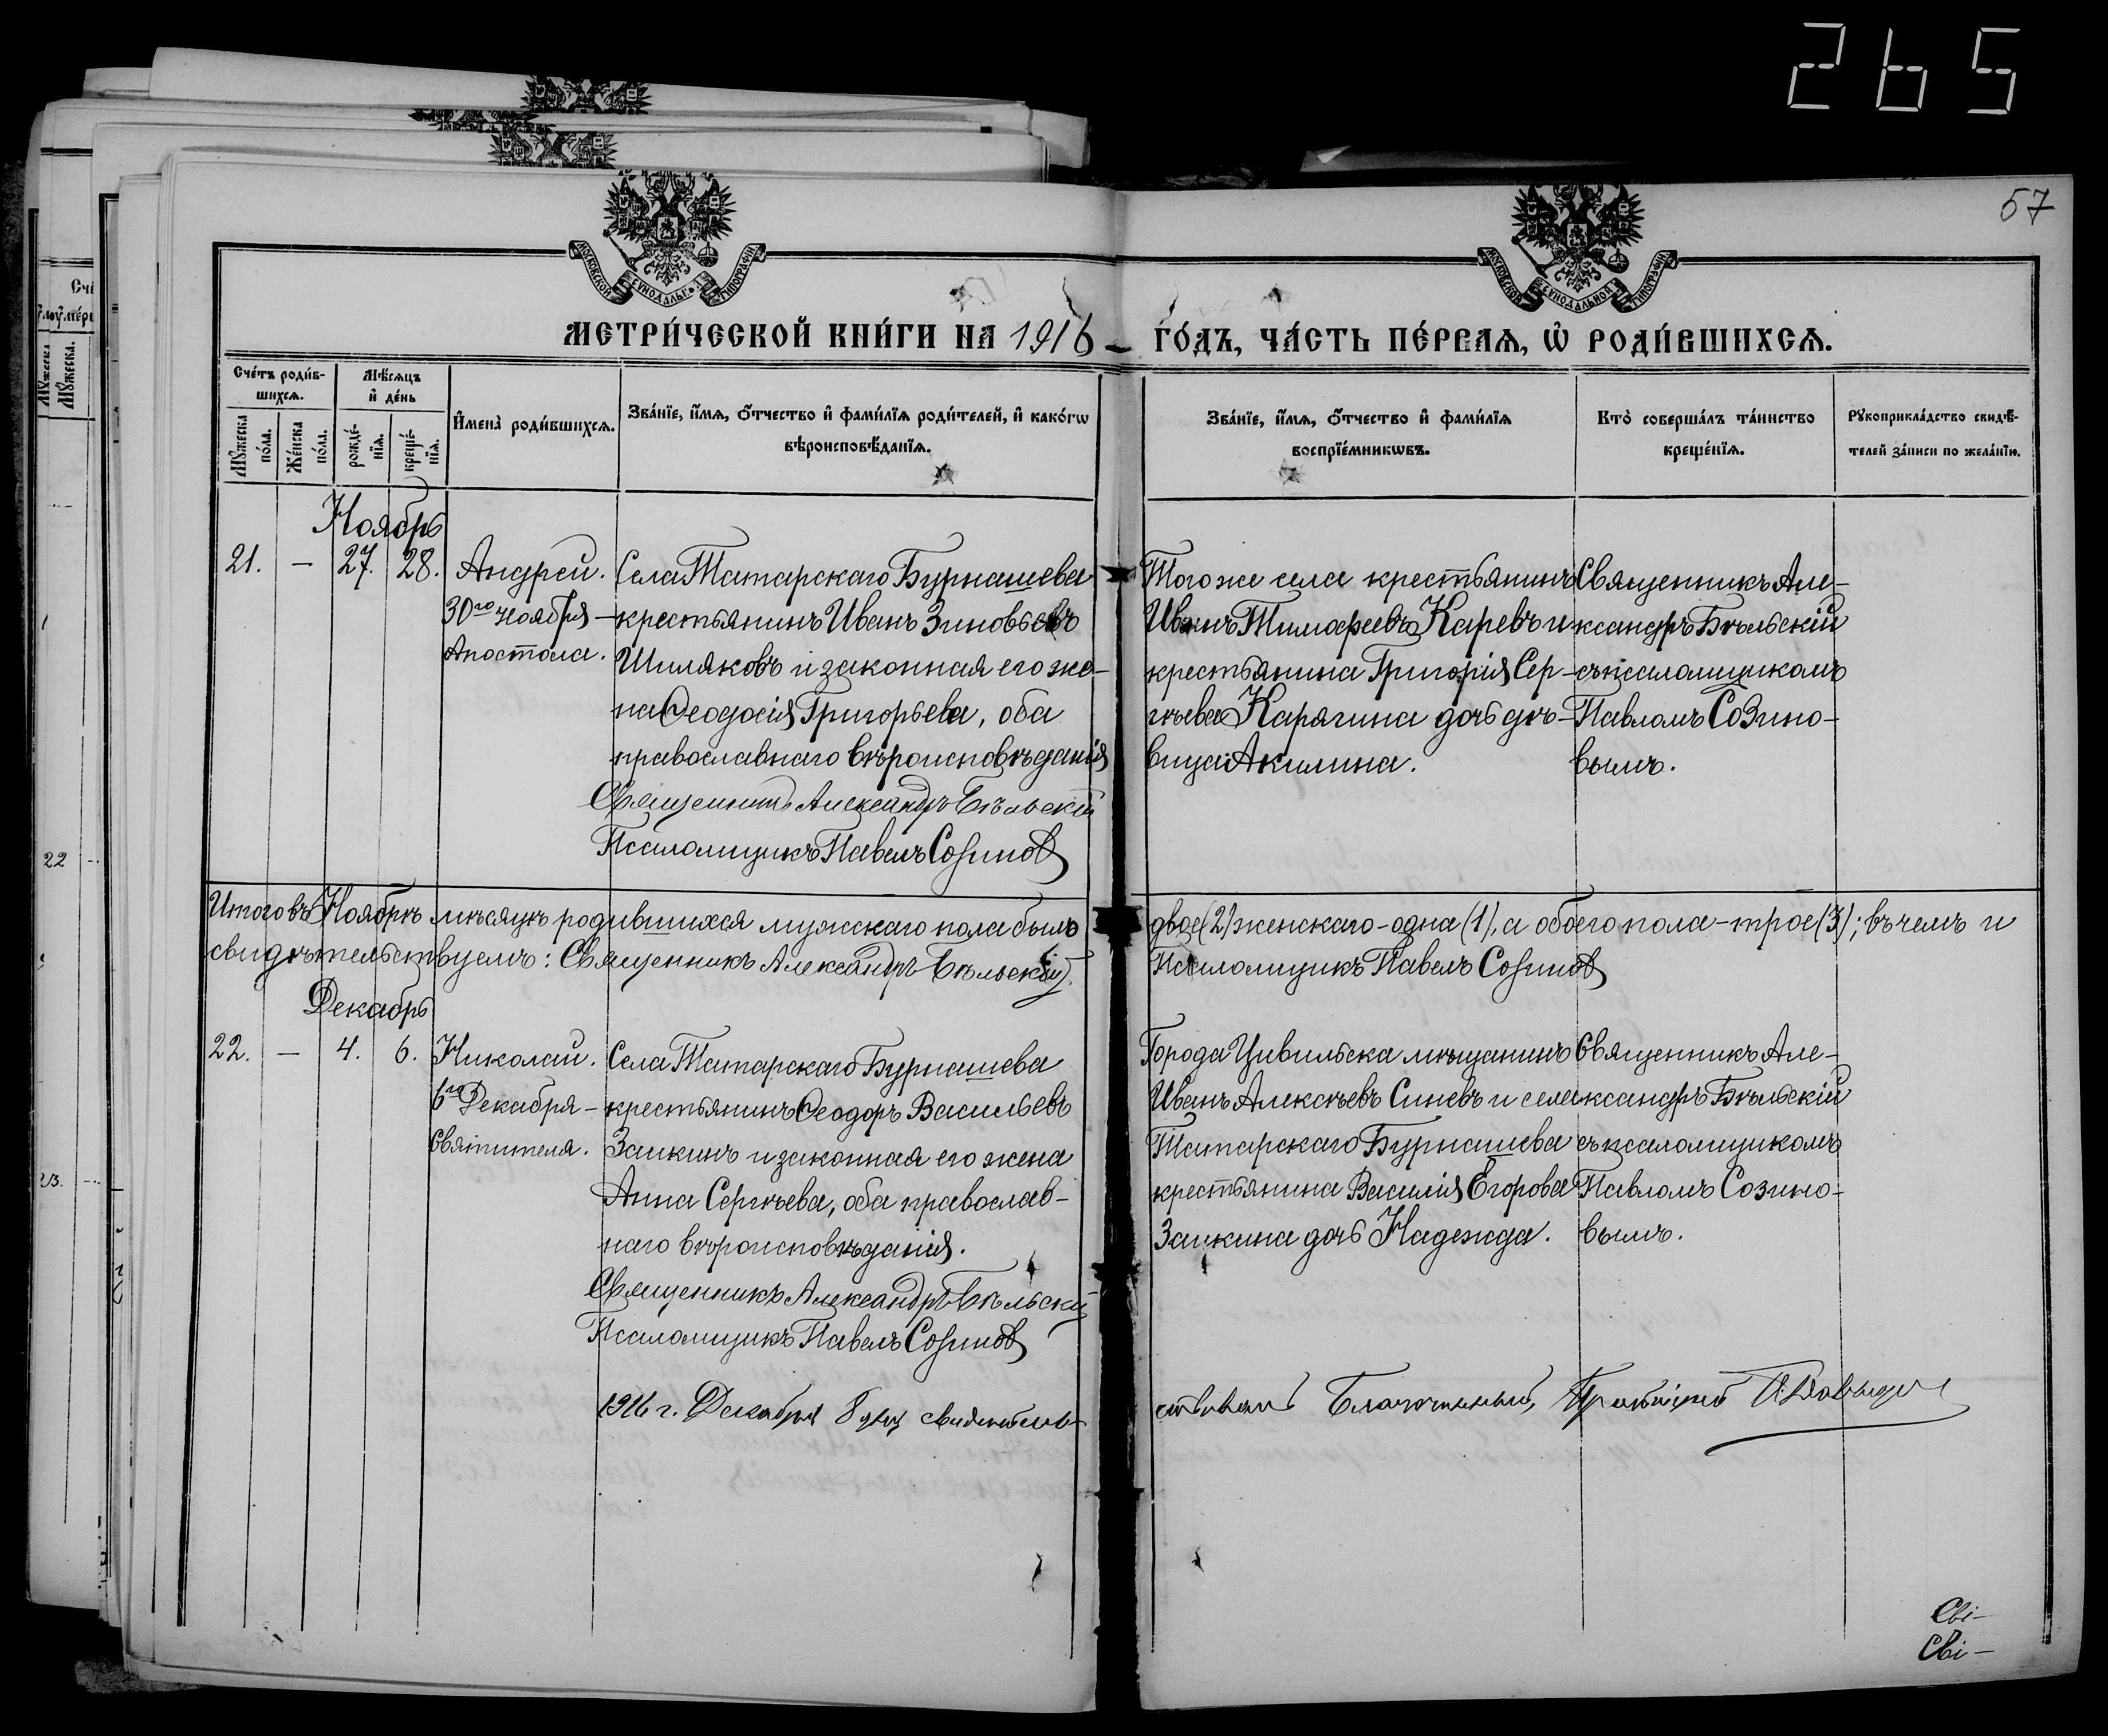 265
57
МОСКОВСКОЙ СѴНОДАЛЬНОЙ ТИПОГРАФІИ
МОСКОВСКОЙ СѴНОДАЛЬНОЙ ТИПОГРАФІИ
МЕТРИ́ЧЕСКОЙ КНИ́ГИ НА 1916 – ГО́ДЪ, ЧА́СТЬ ПЕ́РВАЯ, Ѡ РОДИ́ВШИХСѦ.
Сче́тъ роди́в-
шихсѧ.
Мꙋ́жеска по́ла.
Же́нска по́ла.
Мѣ́сѧцъ
и҆ де́нь
рожде́-нїѧ.
креще́-нїѧ.
И҆мена̀ роди́вшихсѧ.
Зва́нїе, и҆́мѧ, ѻ҆́тчество и҆ фами́лїѧ роди́телей, и҆ како́гѡ
вѣроисповѣ́данїѧ.
Зва́нїе, и҆́мѧ, ѻ҆́тчество и҆ фами́лїѧ
воспрїе́мникѡвъ.
Кто̀ соверша́лъ та́инство
креще́нїѧ.
Рꙋкоприкла́дство свидѣ́-
телей за́писи по жела́нїю.
Ноябрь
21. – 27. 28.
Андрей.
30го ноября –
Апостола.
Села Татарскаго Бурнашева
крестьянинъ Иванъ Зиновьевъ
Шиляковъ и законная его же-
на Ѳеодосія Григорьева, оба
православнаго вѣроисповѣданія
Священникъ Александръ Бѣльскій
Псаломщикъ Павелъ Созинов
Того же села крестьянинъ
Иванъ Тимоѳеевъ Каревъ и
крестьянина Григорія Сер-
гѣева Карягина дочь дѣ-
вица Акилина.
Священникъ Але-
ксандръ Бѣльскій
съ псаломщикомъ
Павломъ Созино-
вымъ.
Итого въ Ноябрѣ мѣсяцѣ родившихся мужскаго пола было двое (2) женскаго - одна (1), а обоего пола - трое (3); въ чемъ и
свидѣтельствуемъ: Священникъ Александръ Бѣльскій. Псаломщикъ Павелъ Созинов
Декабрь
22. – 4. 6.
Николай.
6го Декабря –
Святителя.
Села Татарскаго Бурнашева
крестьянинъ Ѳеодоръ Васильевъ
Заикинъ и законная его жена
Анна Сергѣева, оба православ-
наго вѣроисповѣданія.
Священникъ Александръ Бѣльскій
Псаломщикъ Павелъ Созинов
Города Цивильска мѣщанинъ
Иванъ Алексѣевъ Синевъ и села
Татарскаго Бурнашева
крестьянина Василія Егорова
Заикина дочь Надежда.
Священникъ Але-
ксандръ Бѣльскій
съ псаломщикомъ
Павломъ Созино-
вымъ.
1916 г. Декабря 8 дня свидѣтель-
ствовалъ Благочинный, Протоіерей
Сві-
Сві-
22
23.